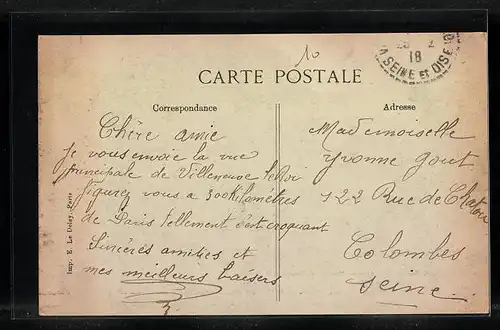 10
18
SEINE ET OISE
CARTE POSTALE
Correspondance
Adresse
Chère amie
Je vous envoie la vue
principale de Villeneuve le Roi
figurez vous a 300 kilomètres
de Paris tellement c'est croquant
Sincères amitiés et
mes meilleurs baisers
Mademoiselle
Yvonne Gout
122 Rue de Chatou
Colombes
Seine.
Imp. E. Le Deley, Paris